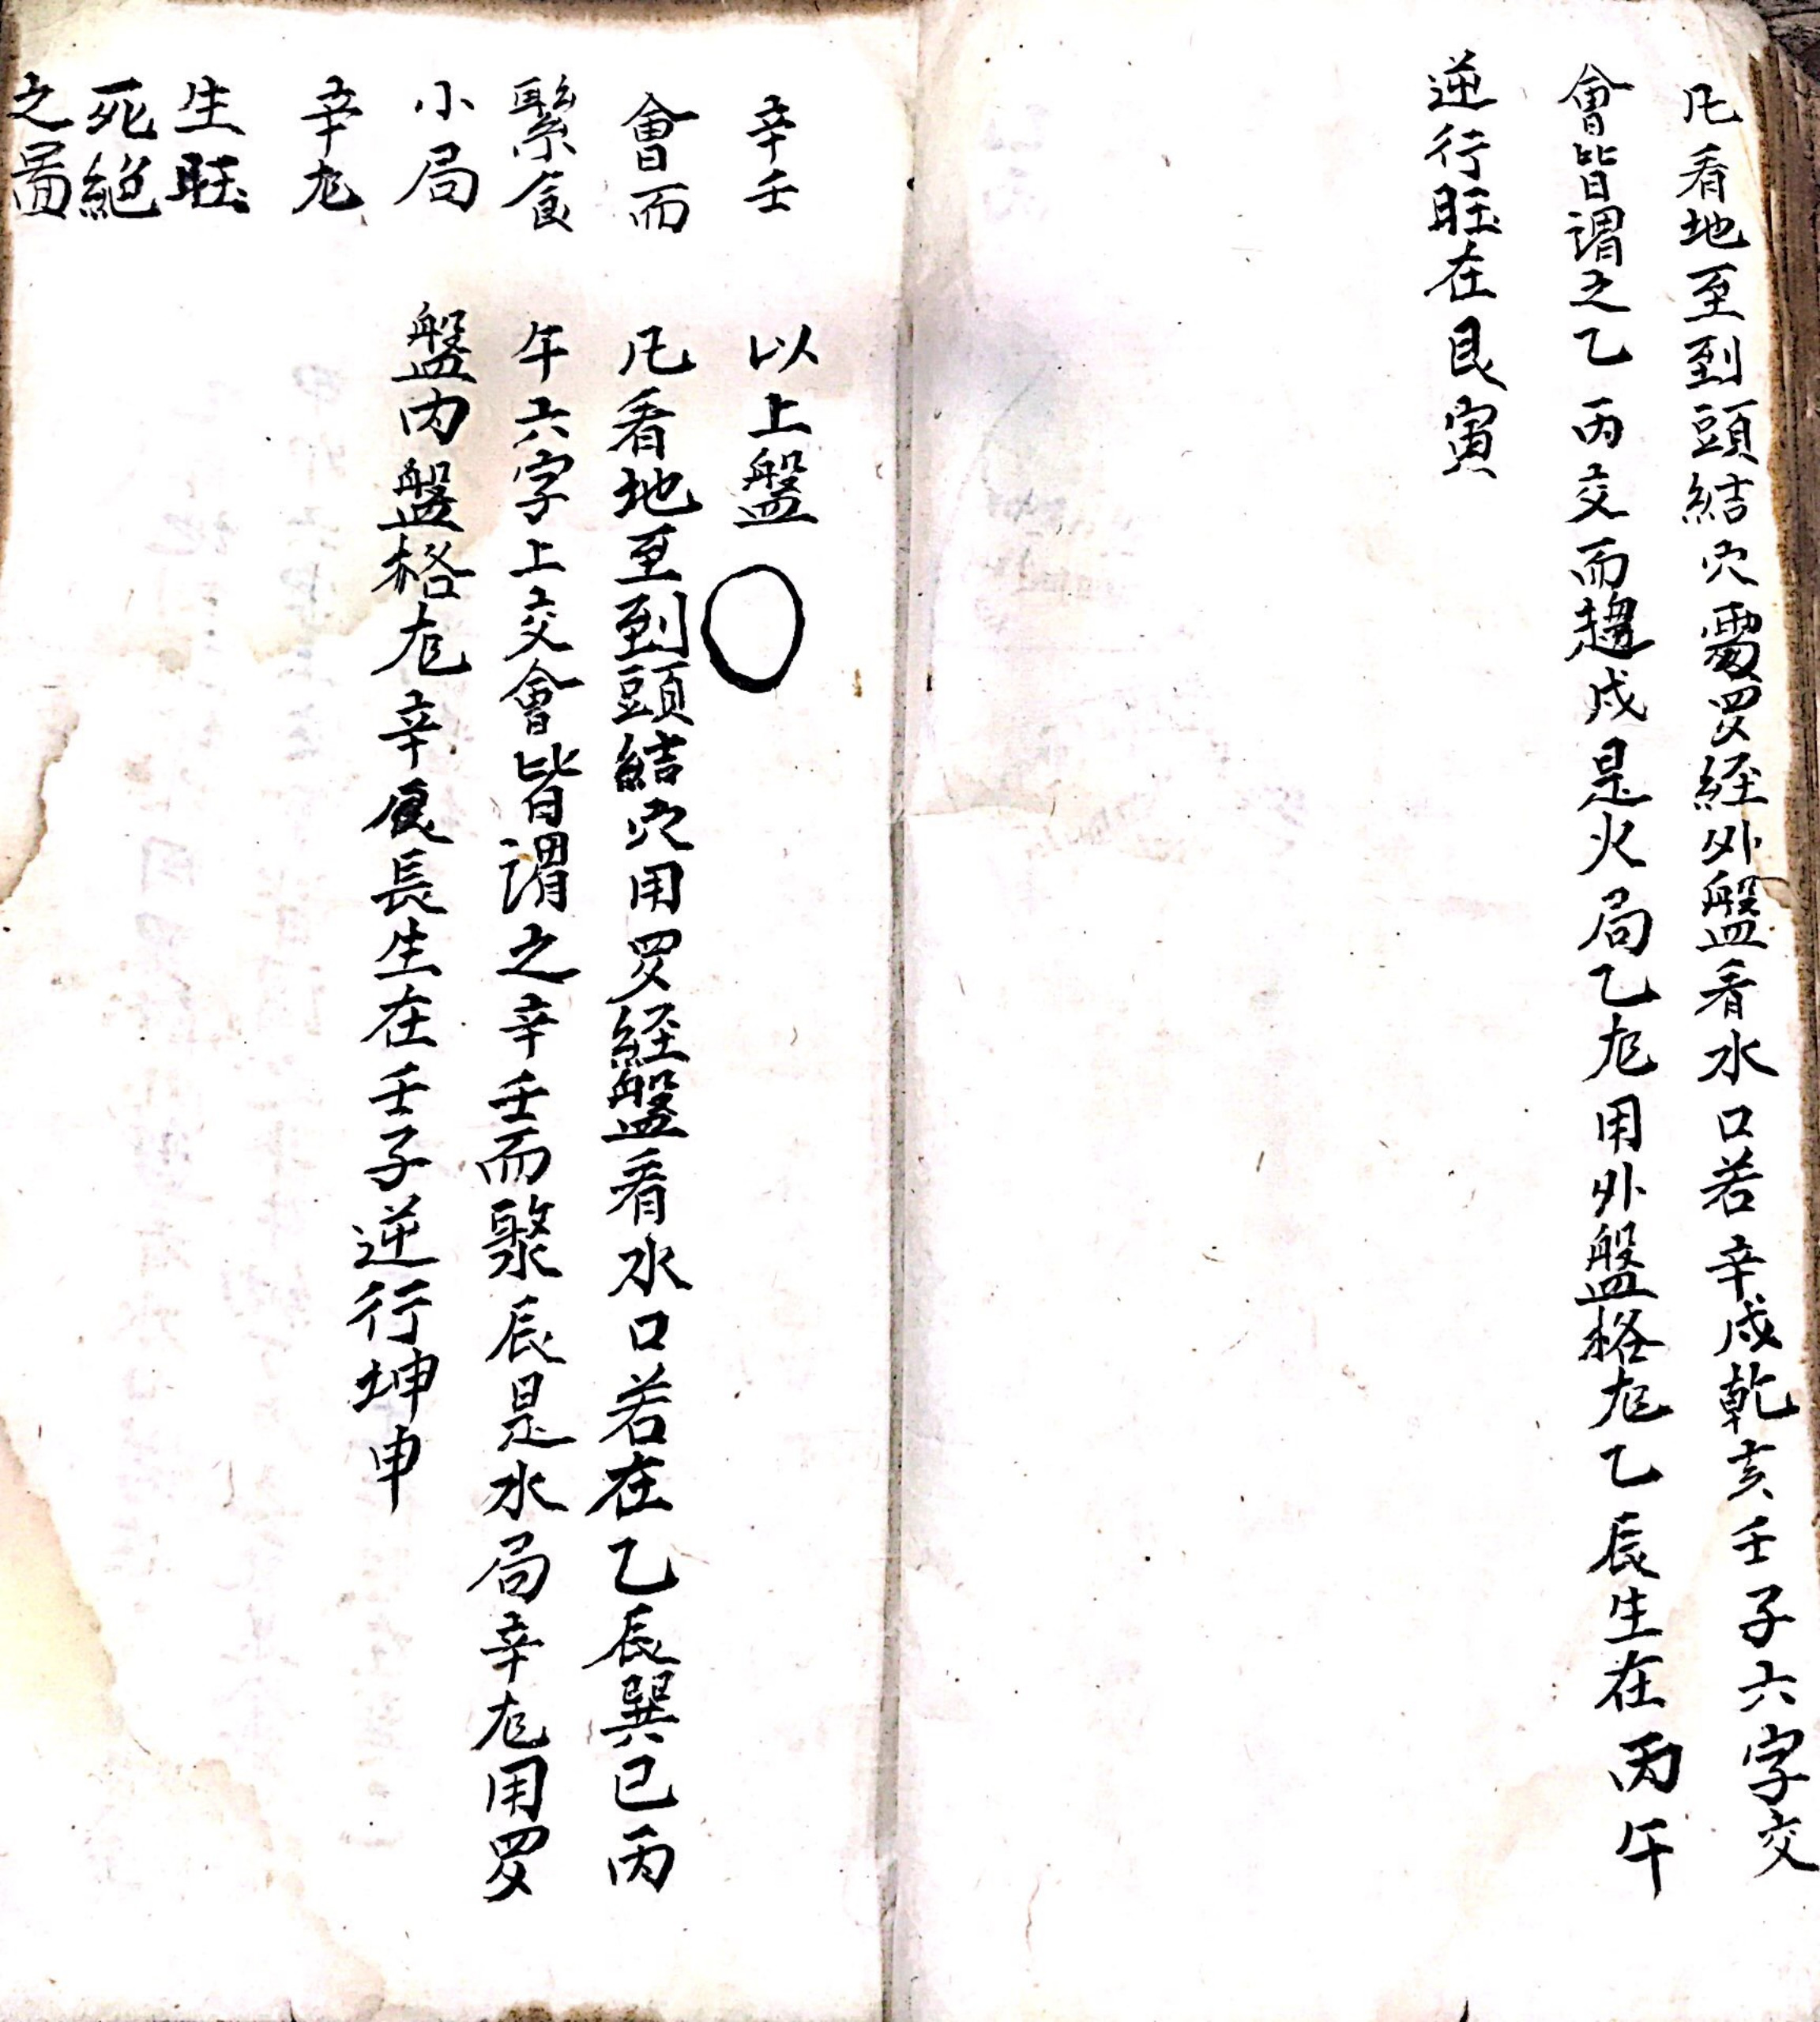 凡看地至到頭結穴需罗経外盤看水口若辛戍乾亥壬子六字交
會皆谓之乙丙交而趨戍是火局乙尨用外盤格尨乙辰生在丙午
逆行旺在艮寅
辛壬
會而
繄食
小局
辛尨
生旺
死絕
之啚
以上盤
凡看地至到頭結穴用罗経盤看水口若在乙辰巽已丙
午六字上交會皆谓之辛壬而聚辰是水局辛尨用罗
盤内盤格尨辛長生在壬子逆行坤申